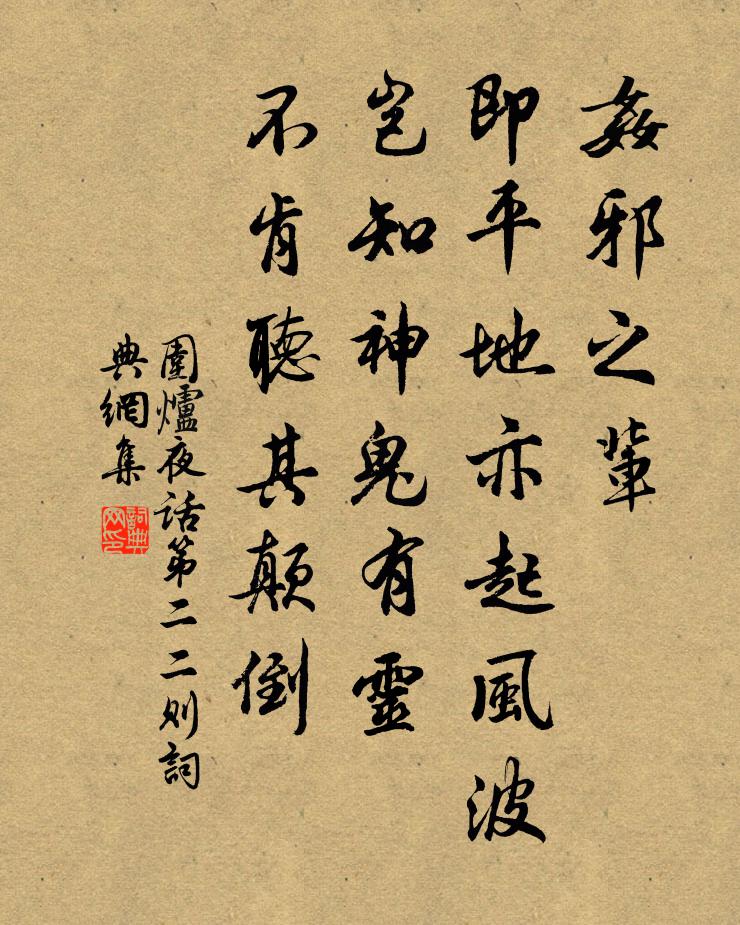 姦邪之輩
即平地亦起風波
豈知神鬼有靈
不肯聽其顛倒
圍爐夜话第二二则詞
典網集
詞典
网印